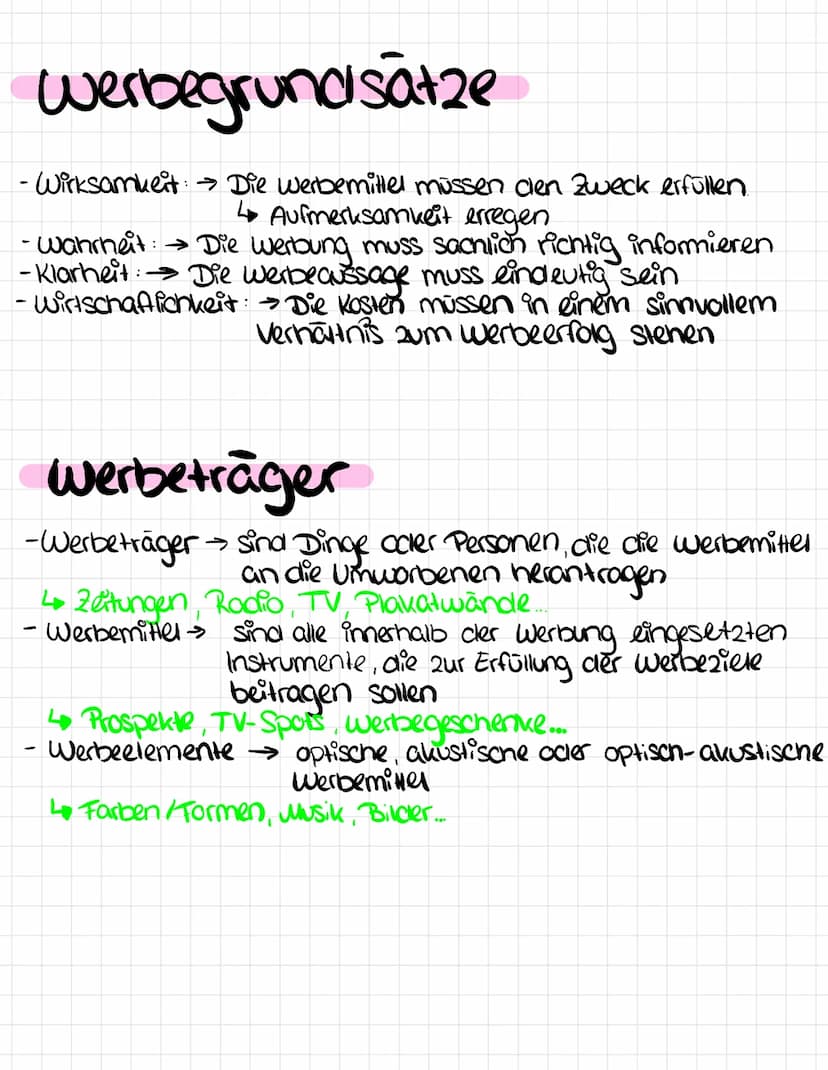 Werbegrundsätze
- Wirksamkeit: → Die Werbemittel müssen den Zweck erfüllen
↳ Aufmerksamkeit erregen
- Wahrheit: → Die Werbung muss sachlich richtig informieren
- Klarheit: → Die Werbeaussage muss eindeutig sein
- Wirtschaftlichkeit: → Die Kosten müssen in einem sinnvollem
Verhältnis zum Werbeerfolg stehen
Werbeträger
- Werbeträger → sind Dinge oder Personen, die die Werbemittel
an die Umworbenen herantragen
↳ Zeitungen, Radio, TV, Plakatwände...
- Werbemittel → sind alle innerhalb der Werbung eingesetzten
Instrumente, die zur Erfüllung der Werbeziele
beitragen sollen
↳ Prospekte, TV-Spots, Werbegeschenke...
- Werbeelemente → optische, akustische oder optisch-akustische
Werbemittel
↳ Farben/Formen, Musik, Bilder...